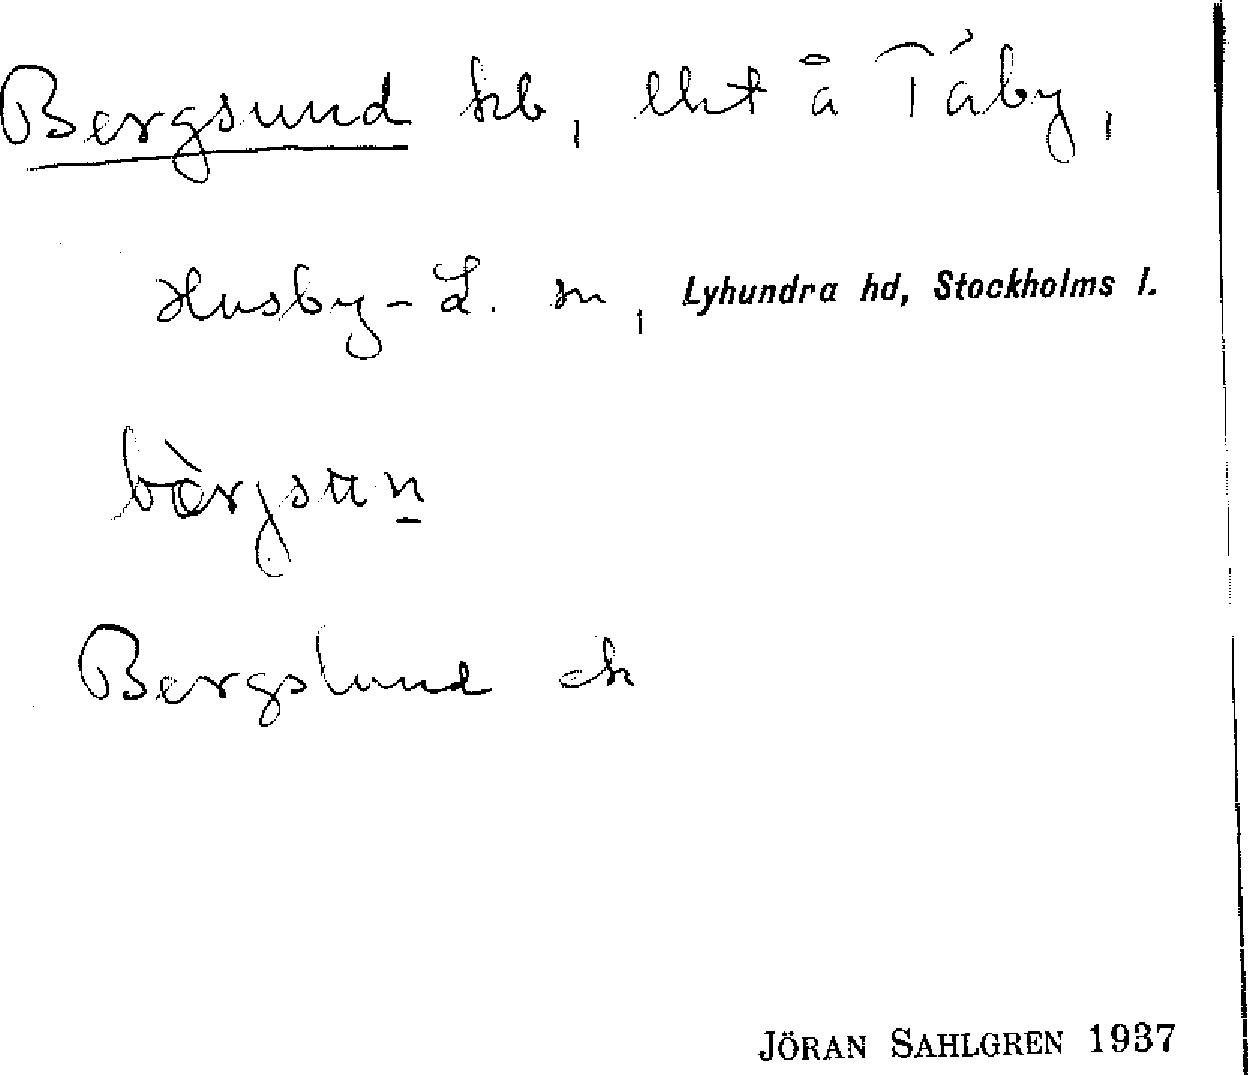 Bergsund hb, lht å Täby,
Husby-L. sn, Lyhundra hd, Stockholms l.
Bergslund ek
JÖRAN SAHLGREN 1937